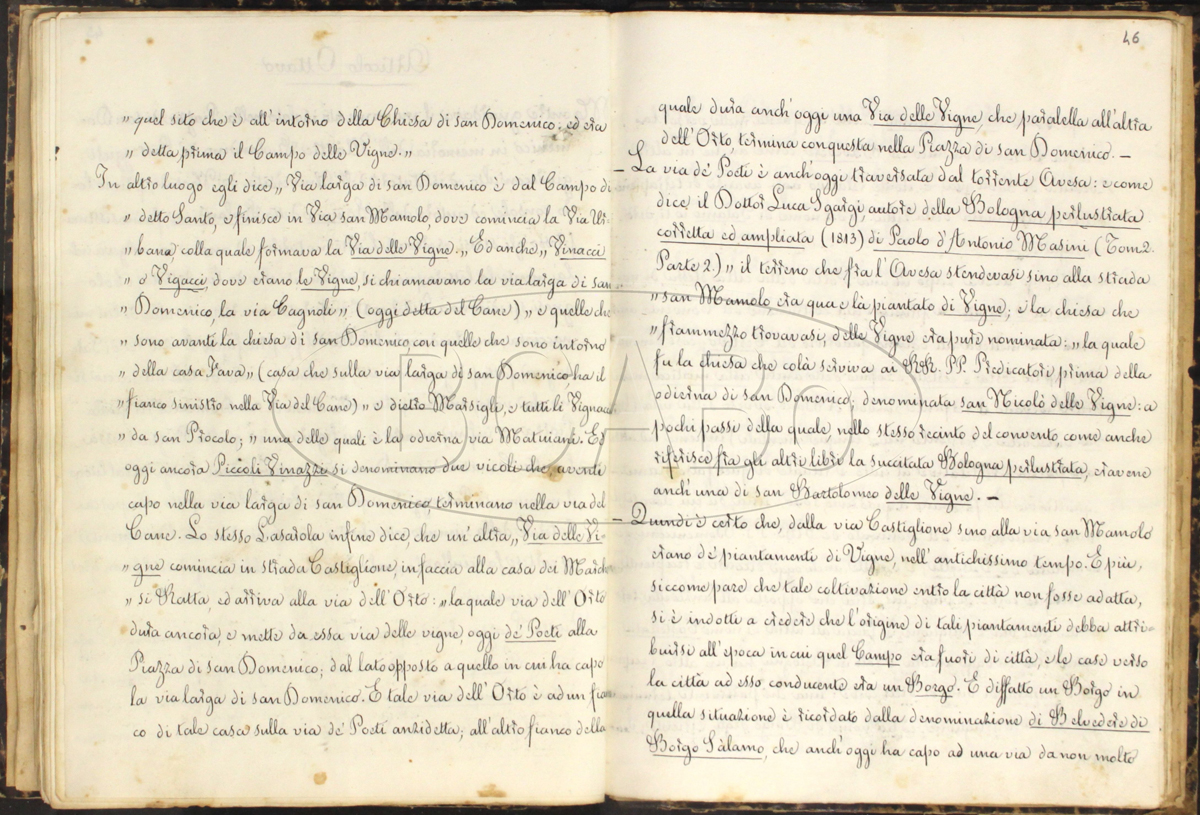 „ quel sito che è all'intorno della Chiesa di san Domenico: ed era
„ detta prima il Campo delle Vigne.„
In altro luogo egli dice „ Via larga di san Domenico è dal Campo di
„ detto Santo, e finisce in Via san Mamolo, dove comincia la Via Ur-
„ bana, colla quale formava la Via delle Vigne.„ Ed anche „ Vinacci
„ o Vigacci, dove erano le Vigne, si chiamavano la via larga di san
„ Domenico, la via Cagnoli „ (oggi detta del Cane) „ e quelle che
„ sono avanti la chiesa di san Domenico, così quelle che sono intorno
„ della casa Fava „ (casa che sulla via larga di san Domenico, ha il
„ fianco sinistro nella Via del Cane) „ e dietro Marsigli, e tutti li Vignacci
„ da san Procolo; „ una delle quali è la odierna via Matuiani. Ed
oggi ancora Piccoli Vinazzi si denominano due vicoli che, aventi
capo nella via larga di san Domenico, terminano nella via del
Cane. Lo stesso Lasarola infine dice, che un'altra „ Via delle Vi-
„ gne comincia in strada Castiglione, in faccia alla casa dei Marche
„ si Ratta, ed arriva alla via dell'Orto: „ la quale via dell'Orto
dura ancora, e mette da essa via delle vigne, oggi de' Poeti alla
Piazza di san Domenico; dal lato opposto a quello in cui ha capo
la via larga di san Domenico. E tale via dell'Orto è ad un fian
co di tale casa sulla via de' Poeti anzidetta; all'altro fianco della
46
quale dura anch'oggi una Via delle Vigne, che paralella all'altra
dell'Orto, termina con questa nella Piazza di san Domenico. —
– La via de' Poeti è anch'oggi traversata dal torrente Avesa: e come
dice il Dottor Luca Sgargi, autore della Bologna perlustrata
corretta ed ampliata (1813) di Paolo d'Antonio Masini (Tom. 2.
Parte 2.) „ il terreno che fra l'Avesa stendevasi sino alla strada
„ san Mamolo, era qua e là piantato di Vigne; e la chiesa che
„ frammezzo trovavasi, delle Vigne era pure nominata: „ la quale
fu la chiesa che colà serviva ai RR. PP. Predicatori prima della
odierna di san Domenico; denominata san Nicolò delle Vigne: a
pochi passi della quale, nello stesso recinto del convento, come anche
riferisce fra gli altri libri la succitata Bologna perlustrata, eravene
anch'una di san Bartolomeo delle Vigne. —
– Quindi è certo che, dalla via Castiglione sino alla via san Mamolo
erano de' piantamenti di Vigne, nell'antichissimo tempo. E più,
siccome pare che tale coltivazione entro la città non fosse adatta,
si è indotti a credere che l'origine di tali piantamenti debba attri-
buirsi all'epoca in cui quel Campo era fuori di città, e le case verso
la città ad esso conducente era un Borgo. E diffatto un Borgo in
quella situazione è ricordato dalla denominazione di Belvedere di
Borgo Sàlamo, che anch'oggi ha capo ad una via da non molto
BCABO